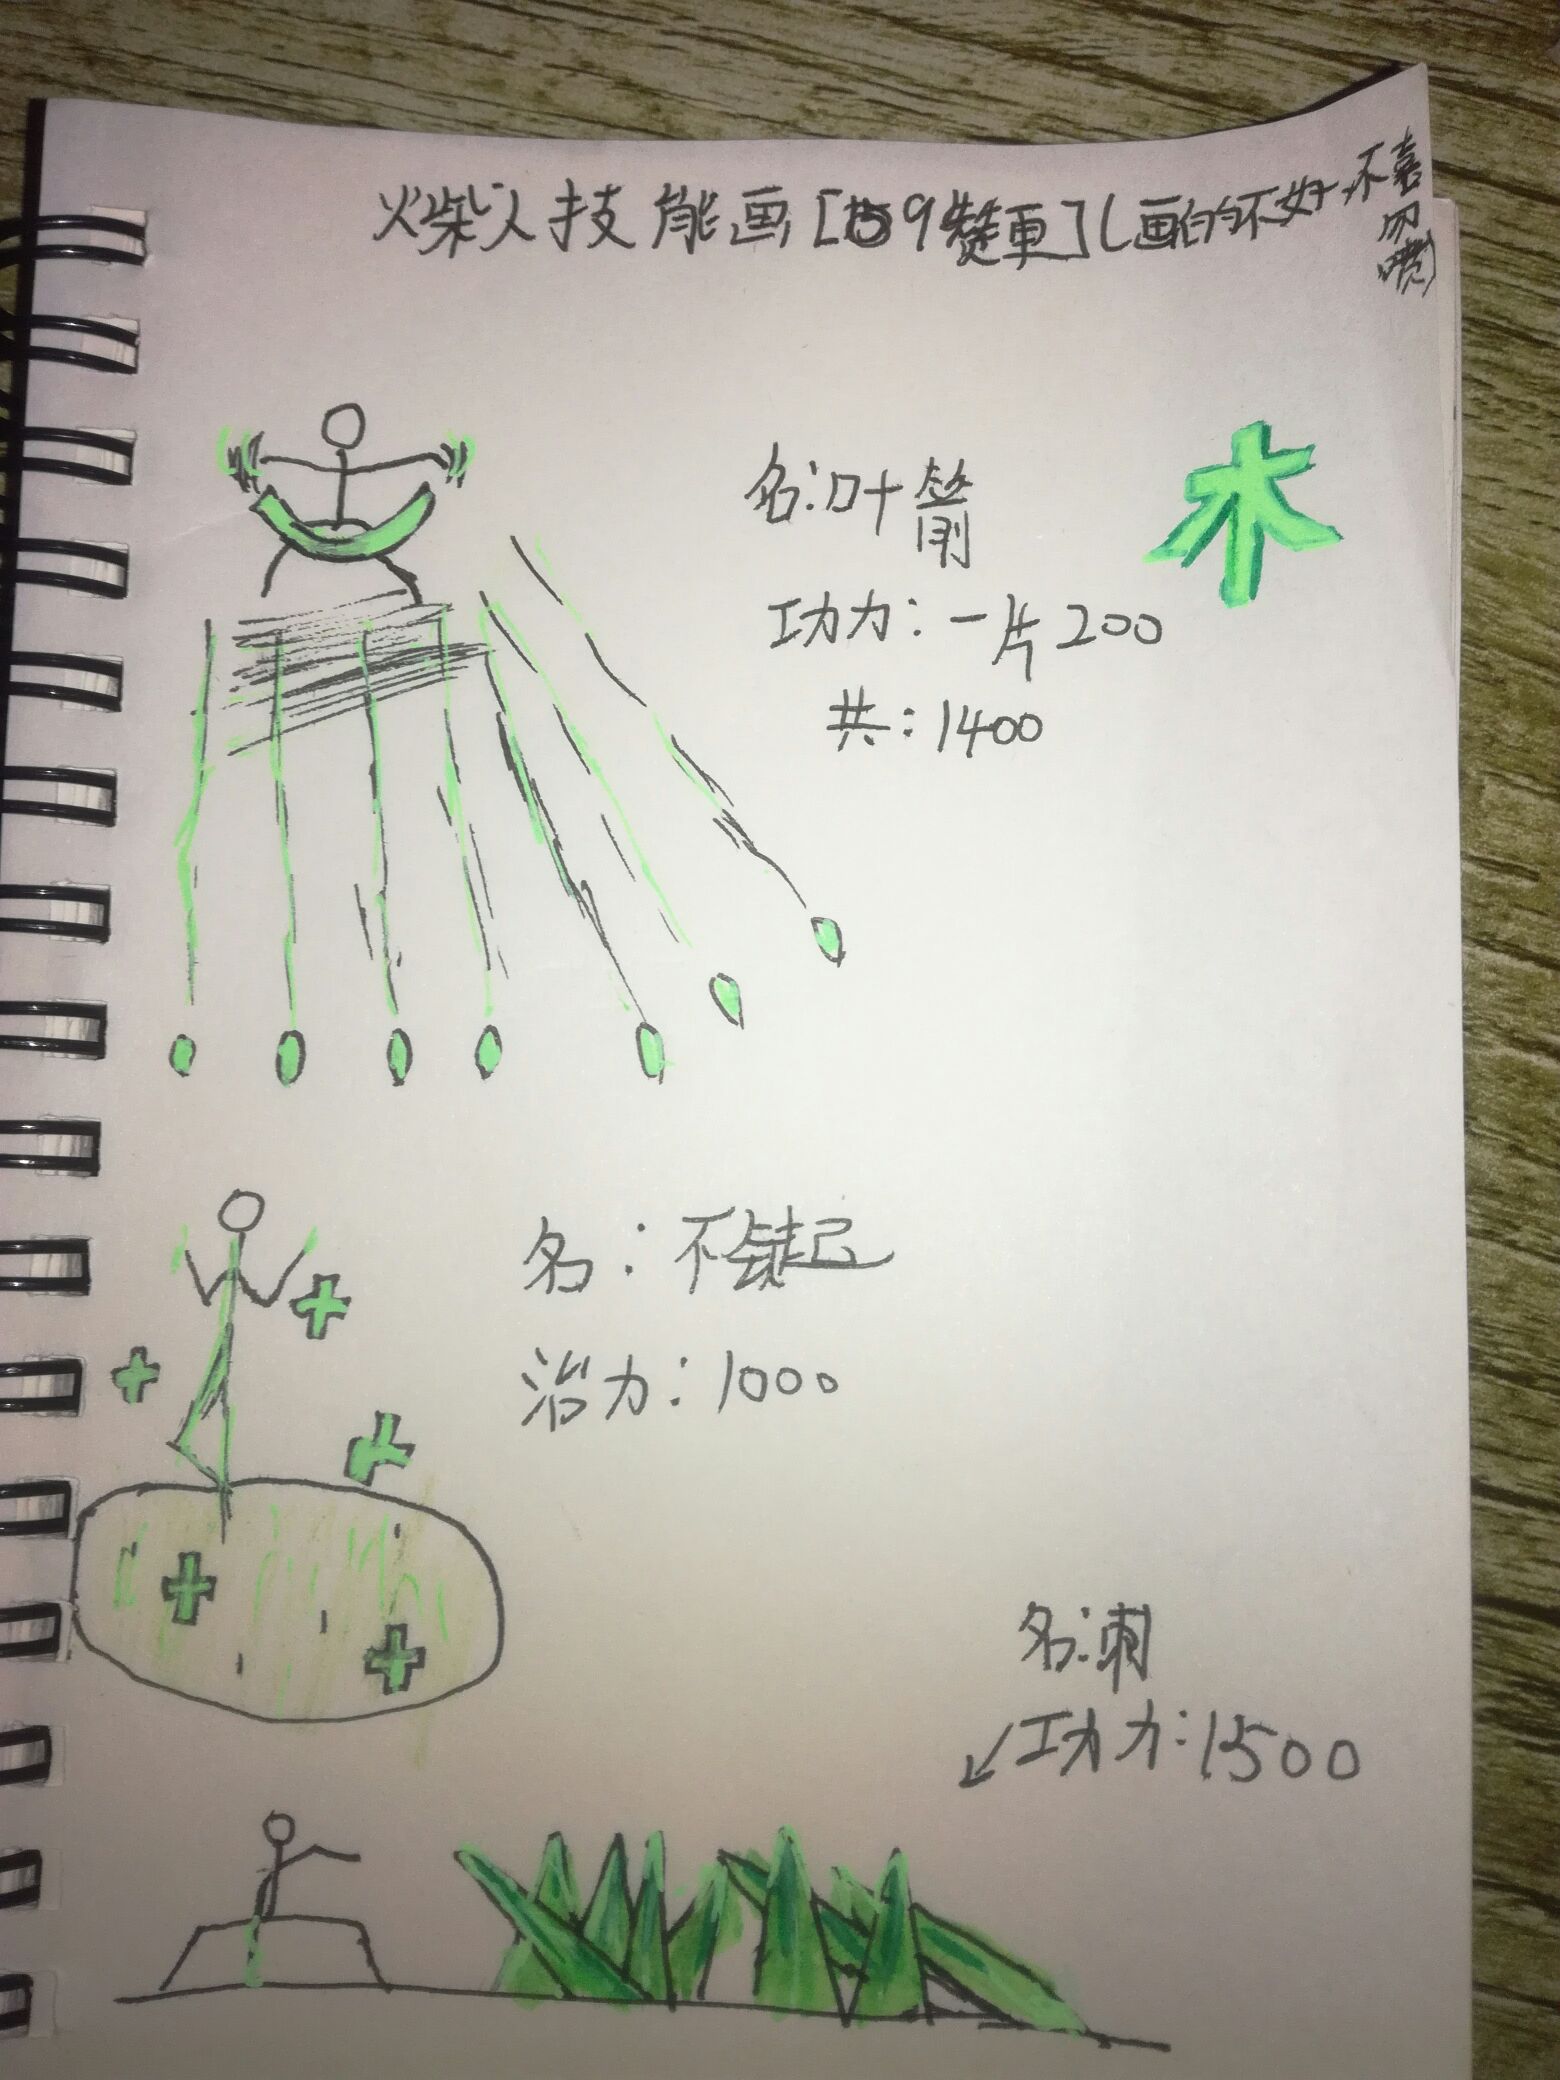 火柴人技能画[59赞更](画的不好,不喜勿喷)
名:叶箭
木
功力:一片200
共:1400
名:不会起
治力:1000
名:刺
功力:1500